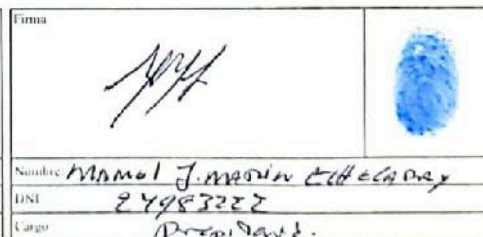 Firma
Nombre: MANUEL J. MARTIN ECHEGARAY
DNI 24983222
Cargo Presidente.